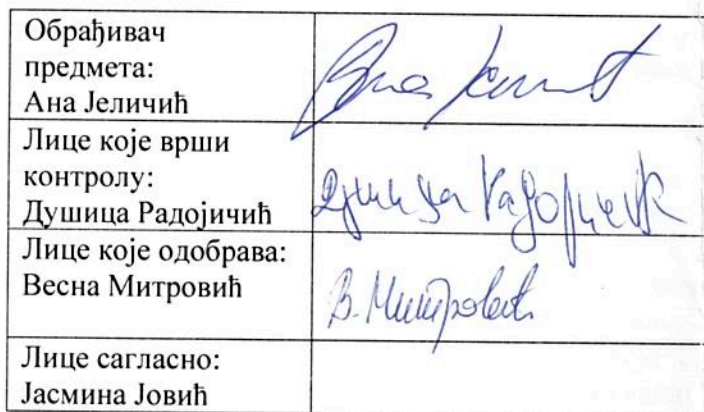 Обрађивач
предмета:
Ана Јеличић
Лице које врши
контролу:
Душица Радојичић
Душица Радојичић
Лице које одобрава:
Весна Митровић
В. Митровић
Лице сагласно:
Јасмина Јовић